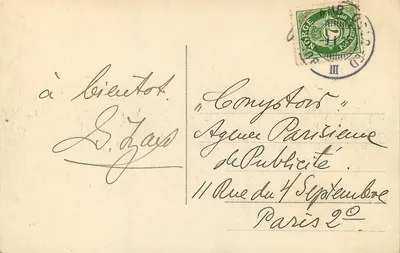 à bientot.
„Conystors"
Agence Parisienne
de Publicité
11 Rue du 4 Septembre
Paris 2º
NORGE
III